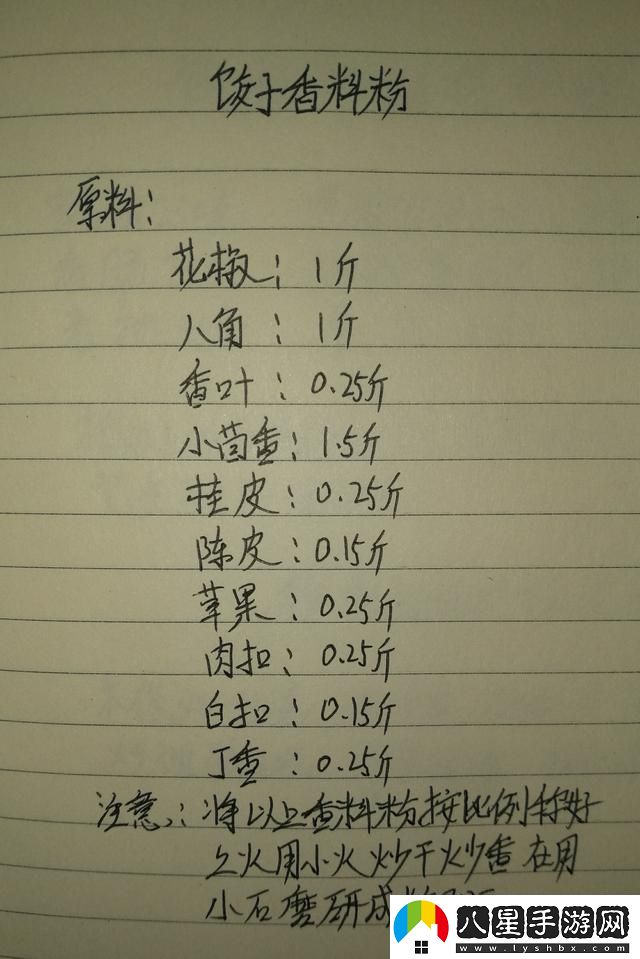 饺子香料粉
原料:
花椒: 1斤
八角: 1斤
香叶: 0.25斤
小茴香: 1.5斤
桂皮: 0.25斤
陈皮: 0.15斤
草果: 0.25斤
肉扣: 0.25斤
白扣: 0.15斤
丁香: 0.25斤
注意: 将以上香料粉按比例称好
上火用小火炒干炒香在用
小石磨研成
八星手游网
www.lyshbx.com